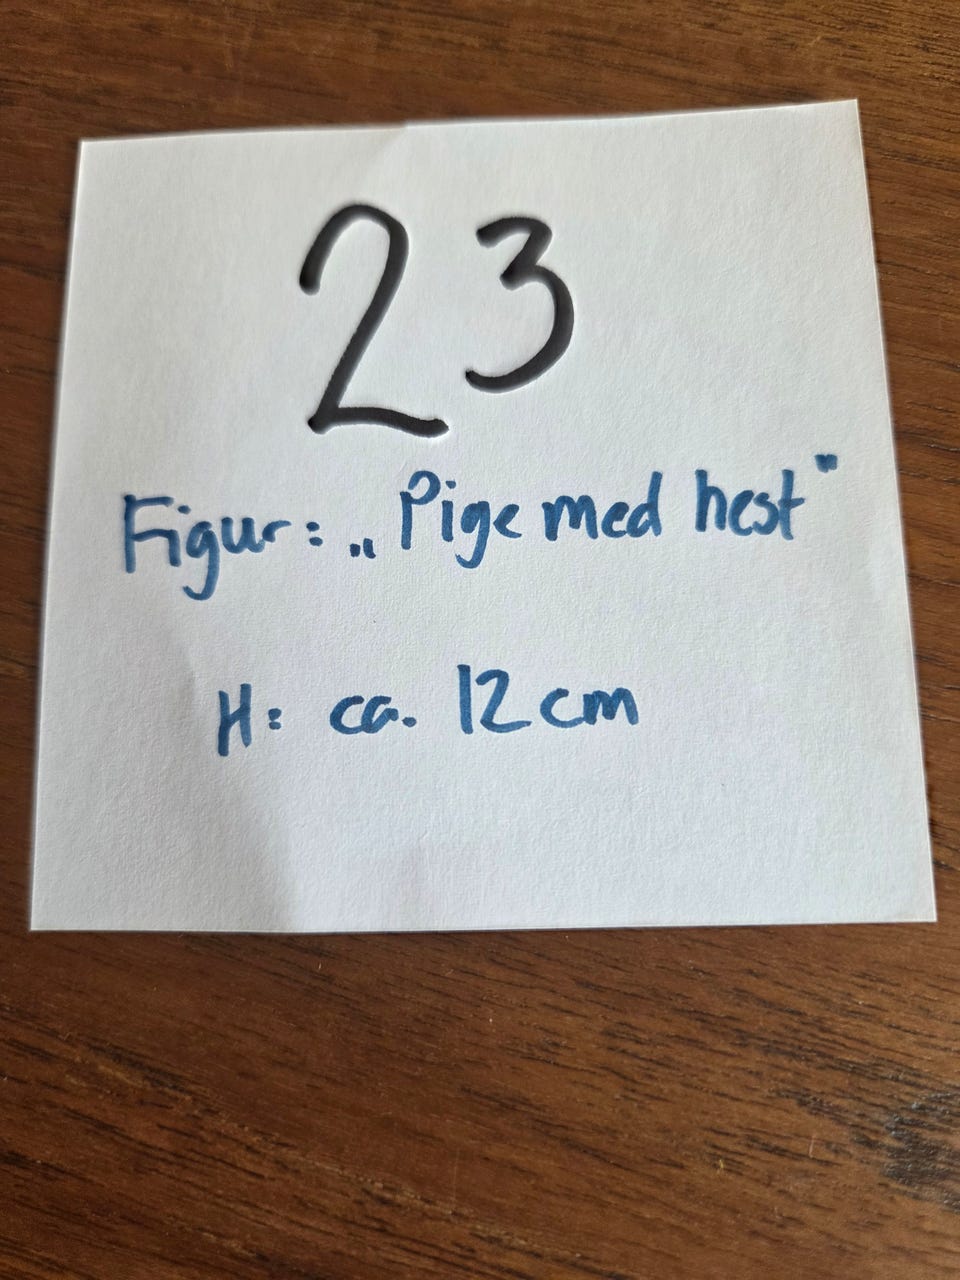 23
Figur: „Pige med hest"
H: ca. 12 cm